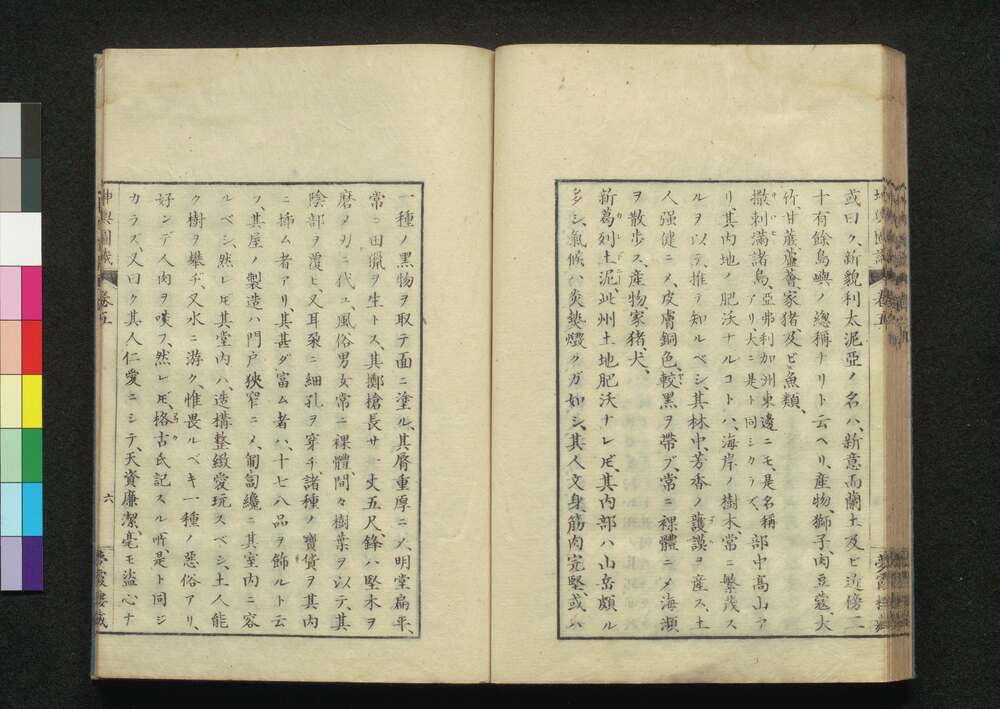 或曰ク、新貌利太泥亞ノ名ハ、新意而蘭土及ビ近傍二
十有餘島嶼ノ總稱ナリト云ヘリ、産物、獅子、肉豆蔲、大
竹、甘蔗、蘆薈、家猪、及ビ魚類、
撒刺滿諸島、亞弗利加州東邊ニモ、是名稱アリ、夫ニ是ト同シクラズ、部中高山ア
リ其内地ノ肥沃ナルコトハ、海岸ノ樹木常ニ繁茂ス
ルヲ以テ、推テ知ルベシ、其林中、芳香ノ護謨ヲ産ス、土
人强健ニメ、皮膚銅色、較黒ヲ帶ブ、常ニ裸體ニメ海瀕
ヲ散歩ス、産物家猪、犬、
新葛列土泥此州土地肥沃ナレ𪜈、其内部ハ山岳頗ル
多シ、氣候ハ炎埶燬クガ如シ、其人文身筋肉完堅、或ハ
一種ノ黒物ヲ取テ面ニ塗ル、其脣重厚ニメ、明堂扁平、
常ニ田獵ヲ生トス、其擲搶長サ一丈五尺、鋒ハ堅木ヲ
磨メ刃ニ代ユ、風俗男女常ニ裸體、間々樹葉ヲ以テ、其
陰部ヲ覆ヒ、又耳朶ニ細孔ヲ穿チ諸種ノ寳貨ヲ其内
ニ挿ム者アリ、其甚ダ富ム者ハ、十七八品ヲ飾ルト云
フ、其屋ノ製造ハ門戸狹窄ニメ、匍匐纔ニ其室内ニ容
ルベシ、然レ𪜈其堂内ハ、造構整緻愛玩スベシ、土人能
ク樹ヲ攀ヂ、又水ニ游ク、惟畏ルベキ一種ノ惡俗アリ、
好ンデ人肉ヲ噗フ、然レ𪜈、格古氏記スル所、是ト同ジ
カラズ、又曰ク其人仁愛ニシテ、天資廉潔毫モ盜心ナ
坤輿圖識
卷五
六
夢霞樓藏